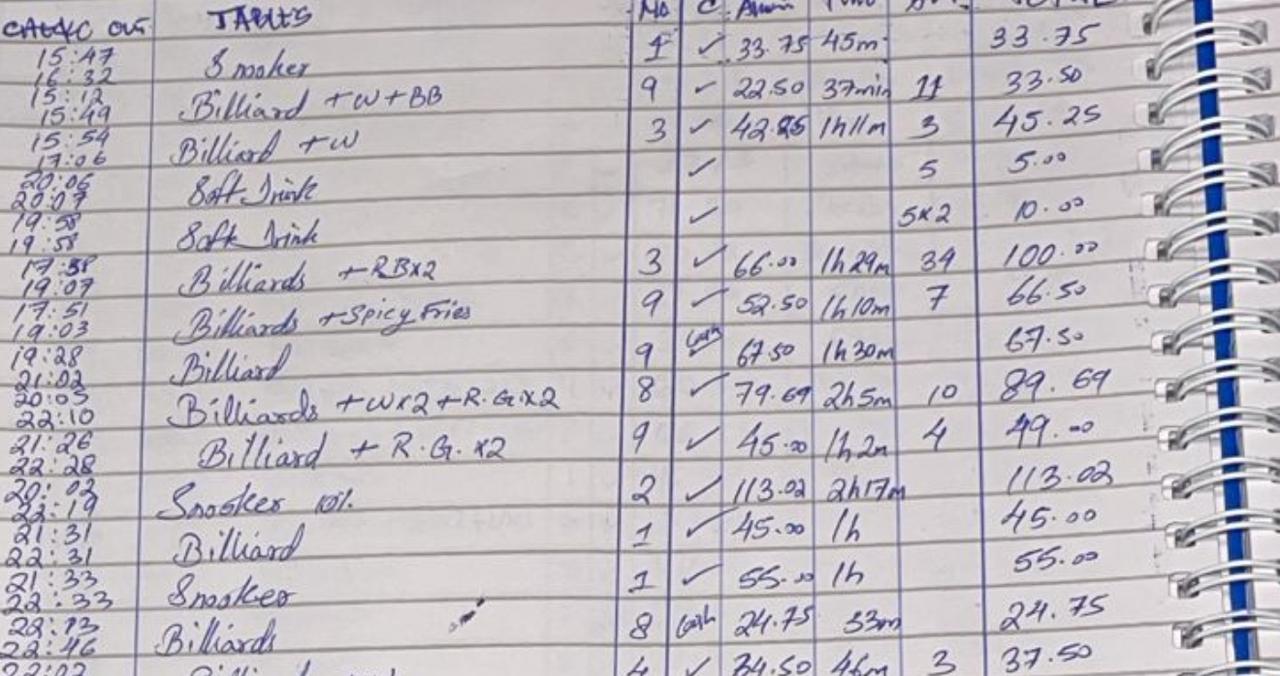 TABLES No C. Amin
15:47 16:32 Snooker 1 ✓ 33.75 45m 33.75
15:12 15:49 Billiard +W+BB 9 ✓ 22.50 37min 11 33.50
15:54 17:06 Billiard +W 3 ✓ 42.25 1h11m 3 45.25
20:06 20:07 Soft Drink ✓ 5 5.00
19:58 19:58 Soft Drink ✓ 5x2 10.00
19:07 Billiards +RBx2 3 ✓ 66.00 1h29m 34 100.00
17:51 19:03 Billiards +Spicy Fries 9 ✓ 52.50 1h10m 7 66.50
19:28 21:02 Billiard 9 Cash 67.50 1h30m 67.50
20:05 22:10 Billiards +Wx2+R.G.x2 8 ✓ 79.69 2h5m 10 89.69
21:26 22:28 Billiard + R.G. x2 9 ✓ 45.00 1h2m 4 49.00
20:02 22:19 Snooker 10% 2 ✓ 113.02 2h17m 113.02
21:31 22:31 Billiard 1 ✓ 45.00 1h 45.00
21:33 22:33 Snooker 1 ✓ 55.00 1h 55.00
22:13 22:46 Billiards 8 Cash 24.75 33m 24.75
4 ✓ 34.50 46m 3 37.50